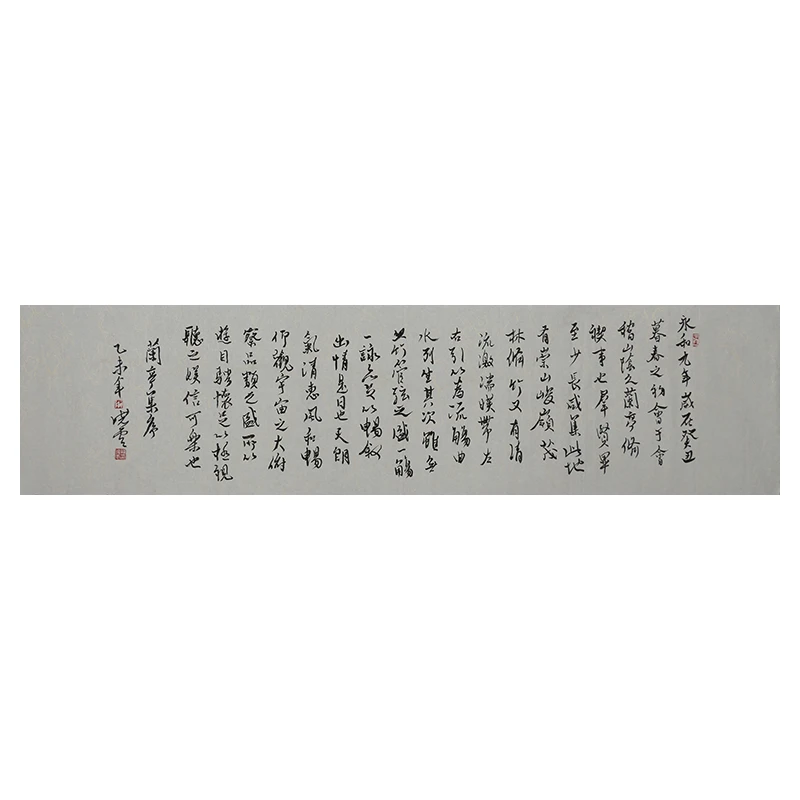 永和九年歲在癸丑
暮春之初會于會
稽山陰之蘭亭脩
禊事也羣賢畢
至少長咸集此地
有崇山峻嶺茂
林脩竹又有清
流激湍暎帶左
右引以為流觴曲
水列坐其次雖無
絲竹管弦之盛一觴
一詠亦足以暢敘
幽情是日也天朗
氣清惠風和暢
仰觀宇宙之大俯
察品類之盛所以
遊目騁懷足以極視
聽之娛信可樂也
蘭亭集序
乙未年